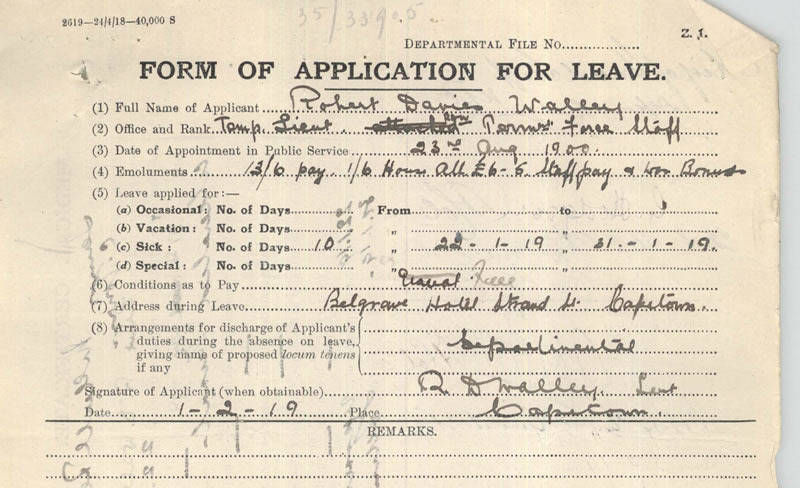 2619—24/4/18—40,000 S
35/33905
Z. 1.
DEPARTMENTAL FILE NO.
FORM OF APPLICATION FOR LEAVE.
(1) Full Name of Applicant Robert Davies Walley
(2) Office and Rank Temp. Lieut. Force Staff
(3) Date of Appointment in Public Service 23rd Aug 1900.
(4) Emoluments 13/6 pay. 1/6 House All £6-5 Staff pay & war Bonus
(5) Leave applied for:—
(a) Occasional: No. of Days From to
(b) Vacation: No. of Days " "
(c) Sick: No. of Days 10 " 22-1-19 " 31-1-19.
(d) Special: No. of Days " "
(6) Conditions as to Pay Usual Free
(7) Address during Leave Belgrave Hotel Strand St. Capetown.
(8) Arrangements for discharge of Applicant's
duties during the absence on leave,
giving name of proposed locum tenens
if any
Departmental
Signature of Applicant (when obtainable) R D Walley Lieut
Date 1-2-19 Place Capetown.
REMARKS.